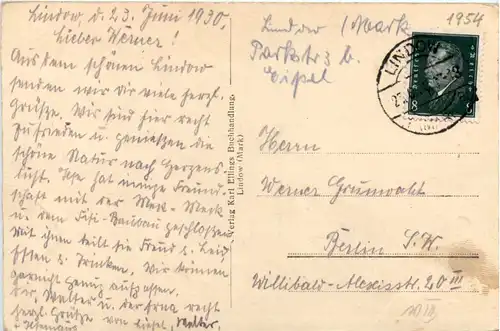 Lindow, d. 23. Juni 1930.
Lieber Werner!
Aus dem schönen Lindow
senden wir dir viele herzl.
Grüße. Wir sind hier recht
zufrieden u. genießen die
schöne Natur nach Herzens-
lust. Ilse hat innige Freund-
schaft mit der Meck-Meck
u. dem geschlossen
Mit ihnen teilt sie Freud u. Leid
Essen u. Trinken. Wir können
garnicht genug aufpassen.
Walter u. Erna recht
herzl. Grüße von Liesel, Walter,
Verlag Karl Ellings Buchhandlung,
Lindow (Mark)
Lindow /Mark
Parkstr 3 b.
1954
LINDOW
8
Herrn
Werner Grunwald
Berlin S.W.
Willibald-Alexisstr. 20 III